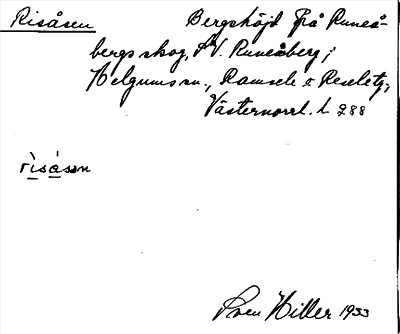 Risåsen Bergshöjd på Runeå-
bergs skog, SV. Runeåberg;
Helgums sn., Ramsele o Resele tg,
Västernorrl. l. 288
rìsàsən
Sven Hiller 1933